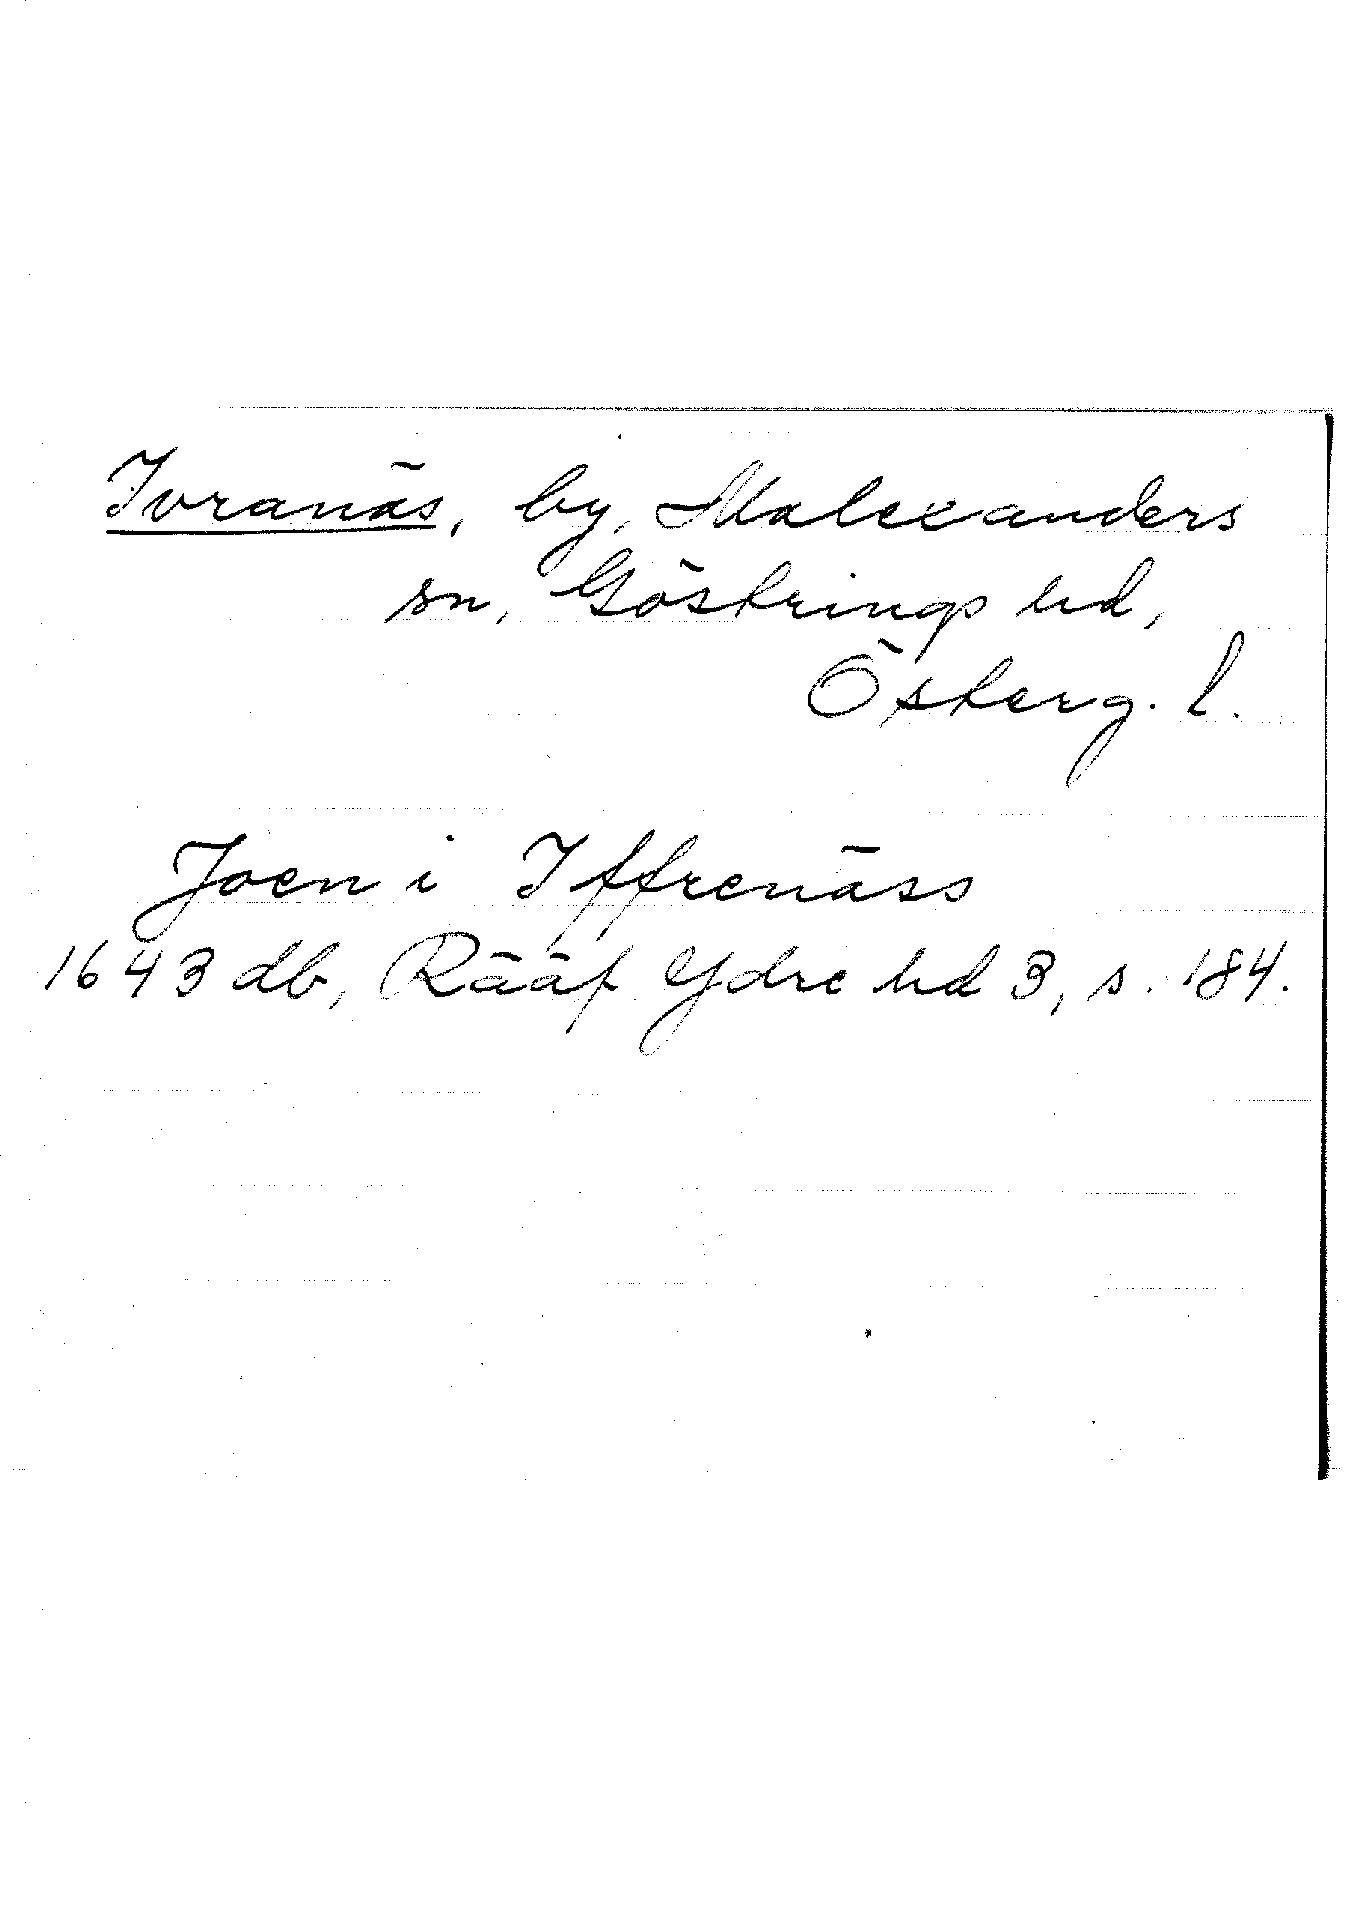 Ivranäs, by, Malexanders
sn, Göstrings hd,
Österg. l.
Joen i Iffrenäss
1643 db, Rääf Ydre hd 3, s. 184.